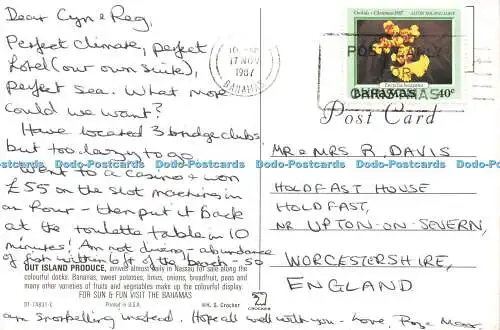 Dear Cyn & Reg,
Perfect climate, perfect
hotel (our own suite),
perfect sea. What more
could we want?
Have located 3 bridge clubs
but too lazy to go
Went to a casino & won
£55 on the slot machines in
an hour - then put it back
at the roulette table in 10
minutes! Am not diving - abundance
of fish within 6ft of the beach - so
am snorkelling instead. Hope all well with you - Love,
OUT ISLAND PRODUCE, arrives almost daily in Nassau for sale along the
colourful docks. Bananas, sweet potatoes, limes, onions, breadfruit, peas and
many other varieties of fruits and vegetables help to make up a colourful display.
FOR SUN & FUN VISIT THE BAHAMAS
DT-74831-C Printed in U.S.A. HH. S. Crocker
CROCKER
17 NOV
1987
BAHAMAS
Orchids - Christmas 1987
BAHAMAS 40c
POST EARLY
CHRISTMAS
Post Card
MR & MRS R. DAVIS
HOLDFAST HOUSE
HOLDFAST,
NR UPTON-ON-SEVERN,
WORCESTERSHIRE,
ENGLAND
Dodo-Postcards Dodo-Postcards Dodo-Postcards Dodo-Postcards